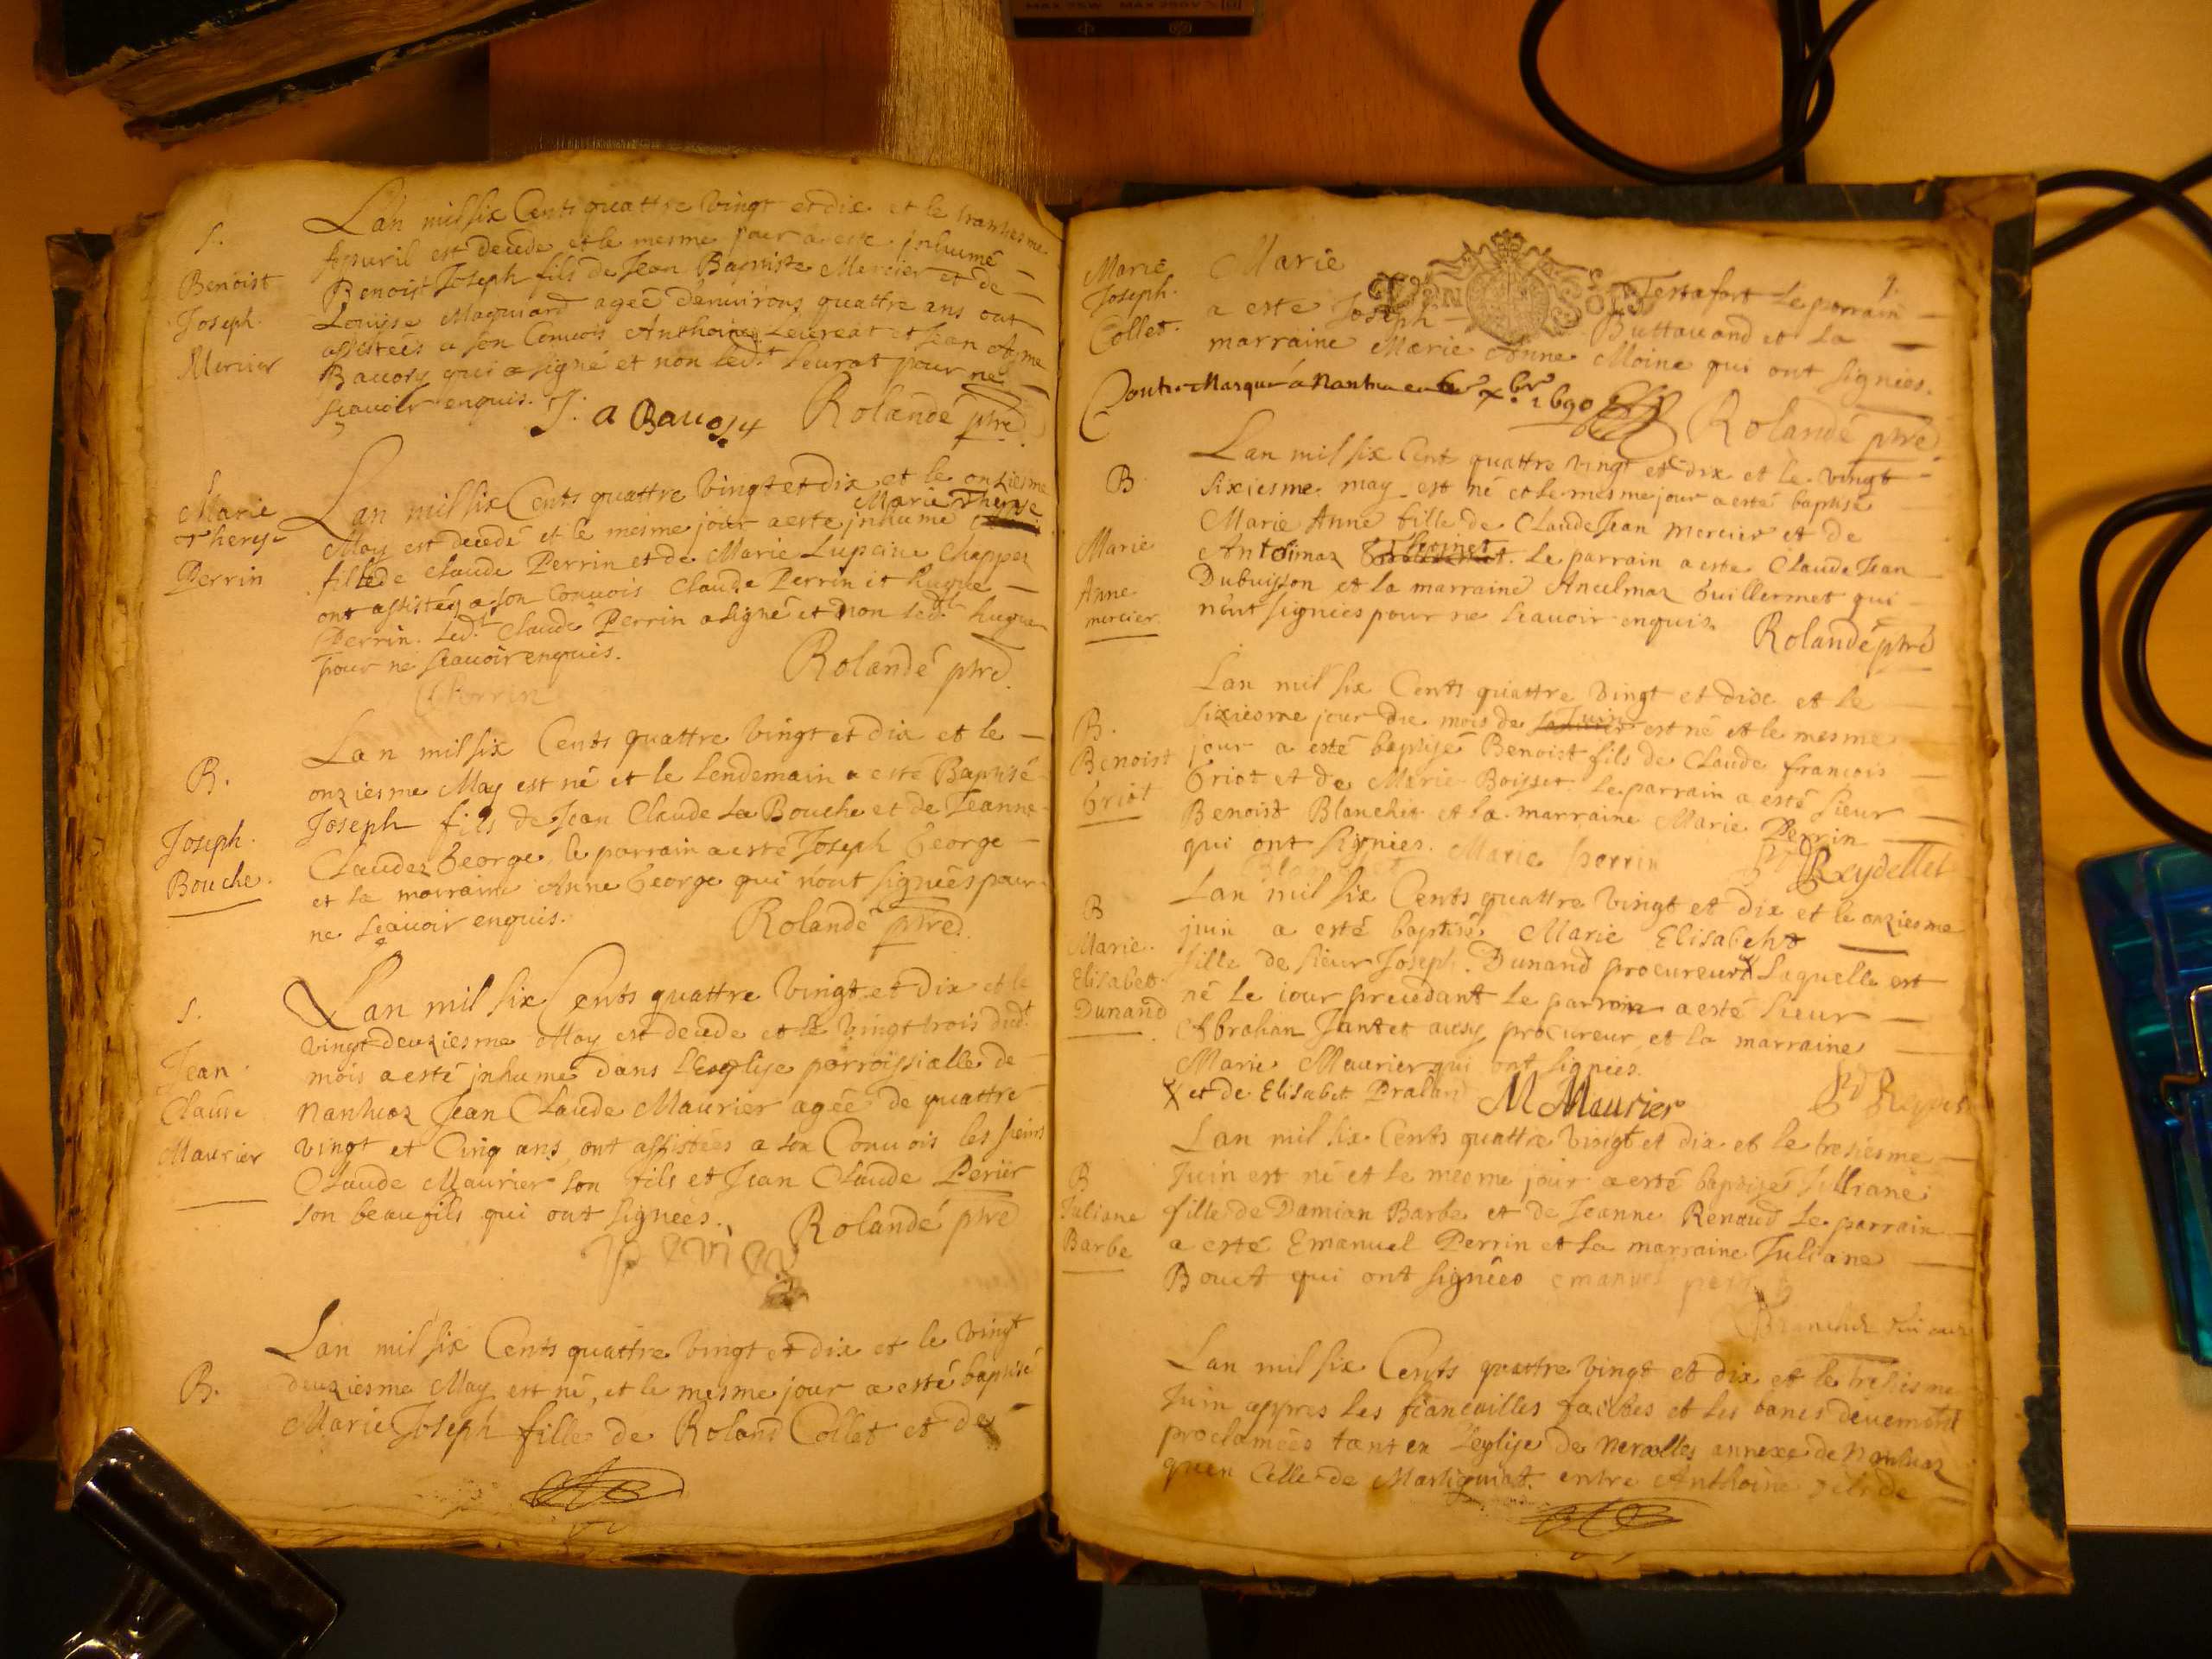 S.
Benoist
Joseph
Mercier
Lan mil six Cents quattre vingt et dix et le
Apuril est decede et le mesme jour a este jnhumé
Benoist Joseph fils de Jean Baptiste Mercier et de
Louyse Magniard ageé denuirons quattre ans ont
assistees a son Conuois Anthoine Leureat et Jean
Bauory qui a signé et non led.t Leurat pour ne
scauoir enquis. J. a Bauory Rolandé ptre
S
Marie
Therese
Perrin
Lan mil six Cents quattre vingt et dix et le onziesme
Marie Therese
May est decedé et le mesme jour a este jnhumé
fille de Claude Perrin et de Marie Lupcine Chappez
ont assistéez a son Conuois Claude Perrin et hugue
Perrin. Led.t Claude Perrin a signé et non led.t hugue
pour ne scauoir enquis. Rolandé ptre
Perrin
B.
Joseph
Bouche.
Lan mil six Cents quattre vingt et dix et le
onziesme May est né et le lendemain a esté Baptisé
Joseph fils de Jean Claude La Bouche et de Jeanne
Claudez George, le parrain a esté Joseph George
et la marraine Anne George qui nont signéés pour
ne scauoir enquis. Rolandé ptre
S.
Jean
Claude
Maurier
Lan mil six Cents quattre vingt et dix et le
vingt deuziesme May est decede et le vingt trois dud.t
mois a esté jnhumé dans Leeglise parroissialle de
nantuaz Jean Claude Maurier ageé de quattre
vingt et Cinq ans, ont assistées a son Conuois les sieurs
Claude Maurier son fils et Jean Claude Perier
son beaufils qui ont signees. Rolandé ptre
B.
Lan mil six Cents quattre vingt et dix et le vingt
deuziesme May est né, et le mesme jour a esté baptisé
Marie Joseph fille de Roland Collet et de
9.
Marie
Joseph
Collet.
Marie Tessafort Le parrain
a esté Joseph Buttauand et la
marraine Marie Anne Moine qui ont signées.
Contre Marqué a Nantua 1690
Rolandé ptre
B
Marie
Anne
mercier.
Lan mil six Cent quattre vingt et dix et le vingt
sixiesme may est né et le mesme jour a esté baptisé
Marie Anne fille de Claude Jean mercier et de
Le parrain a este Claude Jean
Dubuisson et la marraine Ancelmaz Guillermet qui
nont signées pour ne scauoir enquis. Rolandé ptre
B.
Benoist
Griot
Lan mil six Cents quattre vingt et dix et le
sixiesme jour du mois de Juin est né et le mesme
jour a esté baptisé Benoist fils de Claude francois
Griot et de Marie Boisset. Le parrain a esté sieur
Benoist Blanchet et la marraine Marie Perrin
qui ont signées. Marie perrin Reydellet
B
Marie
Elisabet
Dunand
Lan mil six Cents quattre vingt et dix et le onziesme
juin a esté baptisé Marie Elisabeht
fille de sieur Joseph Dunand procureur x Laquelle est
né le iour precedant Le parrain a esté sieur
Abrahan Jantet aussy procureur et la marraine
Marie Maurier qui ont signées.
x et de Elisabet Praland M Maurier
B
Juliane
Barbe
Lan mil six Cents quattre vingt et dix et le tresiesme
Juin est né et le mesme jour a esté baptizé Jullrane
fille de Damian Barbe et de Jeanne Renaud Le parrain
a esté Emanuel Perrin et la marraine Juliane
Bouet qui ont signées emanuel perrin
Lan mil six Cents quattre vingt et dix et le tresiesme
Juin apres les fiancailles faittes et les bancs deuement
proclamées tant en Leglise de nerolles annexe de Nantuaz
quen Celle de Martigniat. entre Anthoine fils de